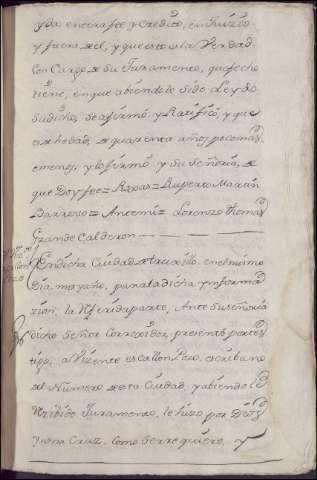 y da entera fee y Credito, en Juizio
y fuera del, y que esto es la Verdad
Con Cargo de su Juramento, que fecho
tiene, en que abiendole sido Leydo
su dicho, se afirmó, y Ratificó, y que
es de hedad, de quarenta años poco mas
o menos, y lo firmó y su Señoria, de
que Doy fee = Roxas = Ruperto Martin
Barroso = Antemi = Lorenzo thomas
Grande Calderon
En dicha Ciudad de truxillo en el mismo
dia, mes y año, para la dicha ynforma
zion, la Referida parte, Ante Su Señoria
dicho Señor Correxidor, presentó por tes
tigo, a Vizente escallon Lozo, escribano
del Numero de esta Ciudad, y abiendole
Rezibido Juramento, le hizo por Dios
y una Cruz, como se requiere, y